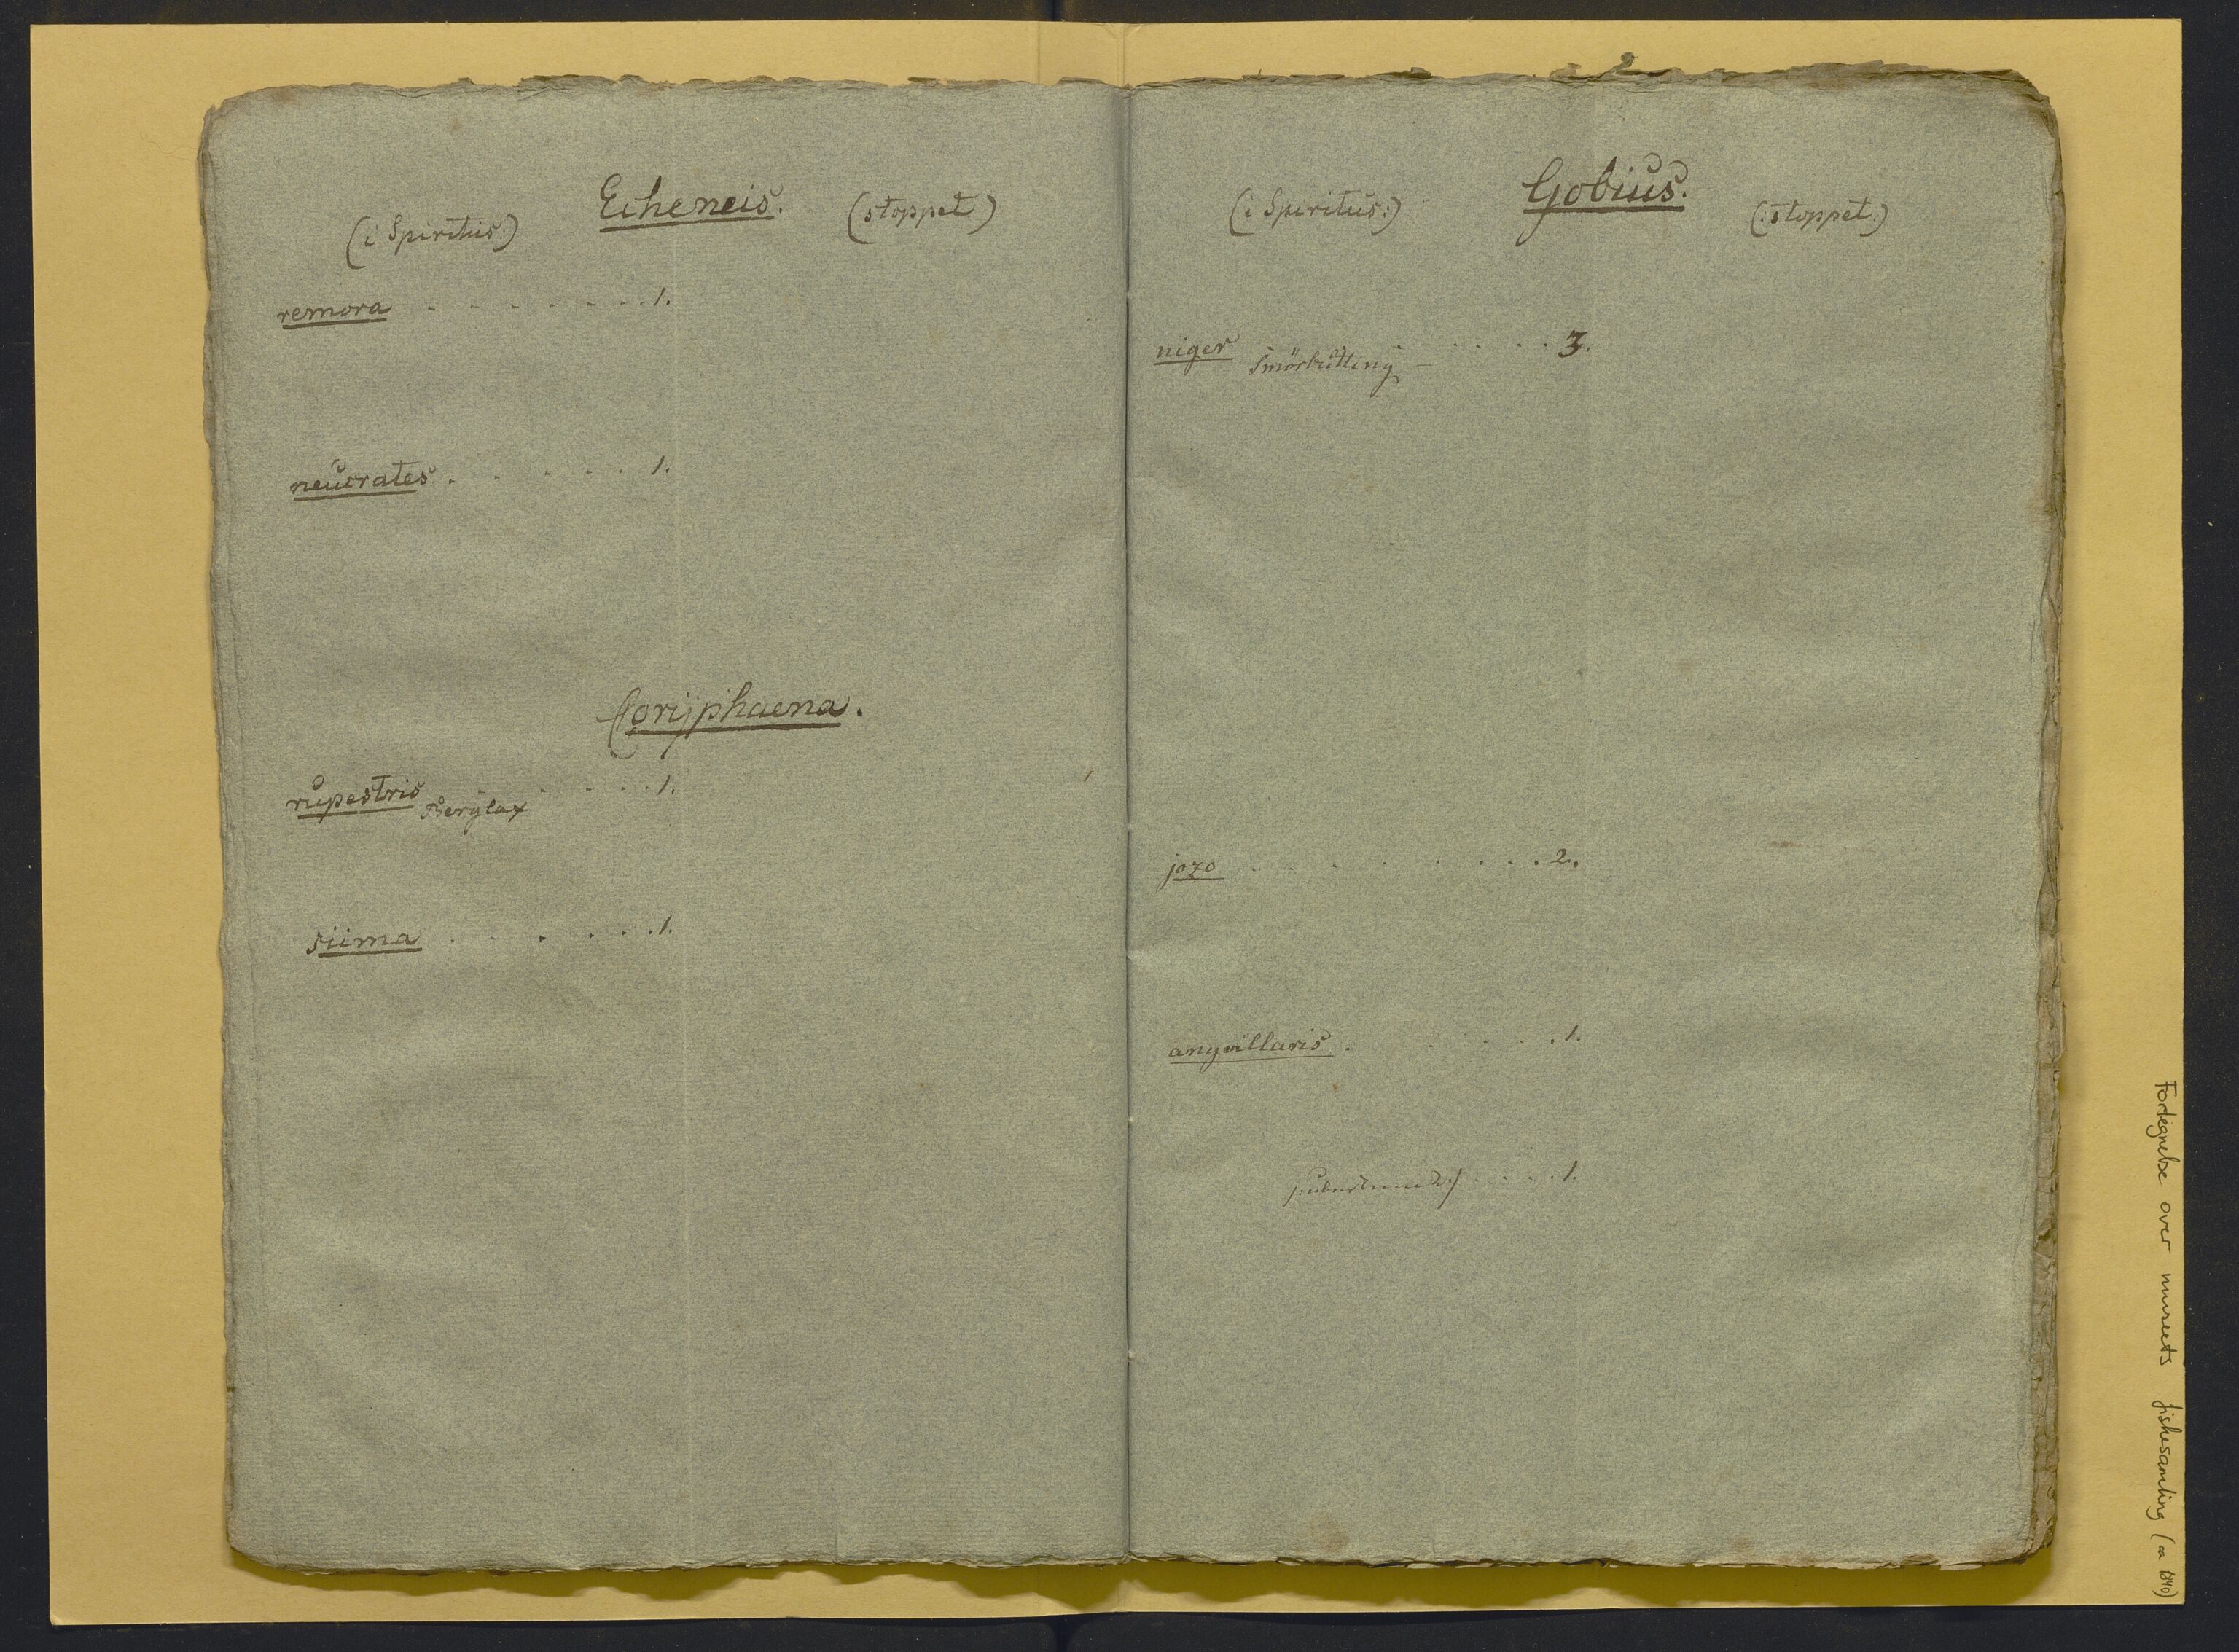 Echeneis.
(i Spiritus:) (stoppet)
remora . . . . . . . 1.
neucrates . . . . . 1.
Coryphaena.
rupestris Berglax . . . . 1.
siima . . . . . . 1.
Gobius.
(i Spiritus:) (:stoppet:)
niger Smörbutting – . . . . 3.
jozo . . . . . . . . 2.
angvillaris . . . . . . 1.
. . . . 1.
Fortegnelse over museets fiskesamling (ca 1840)